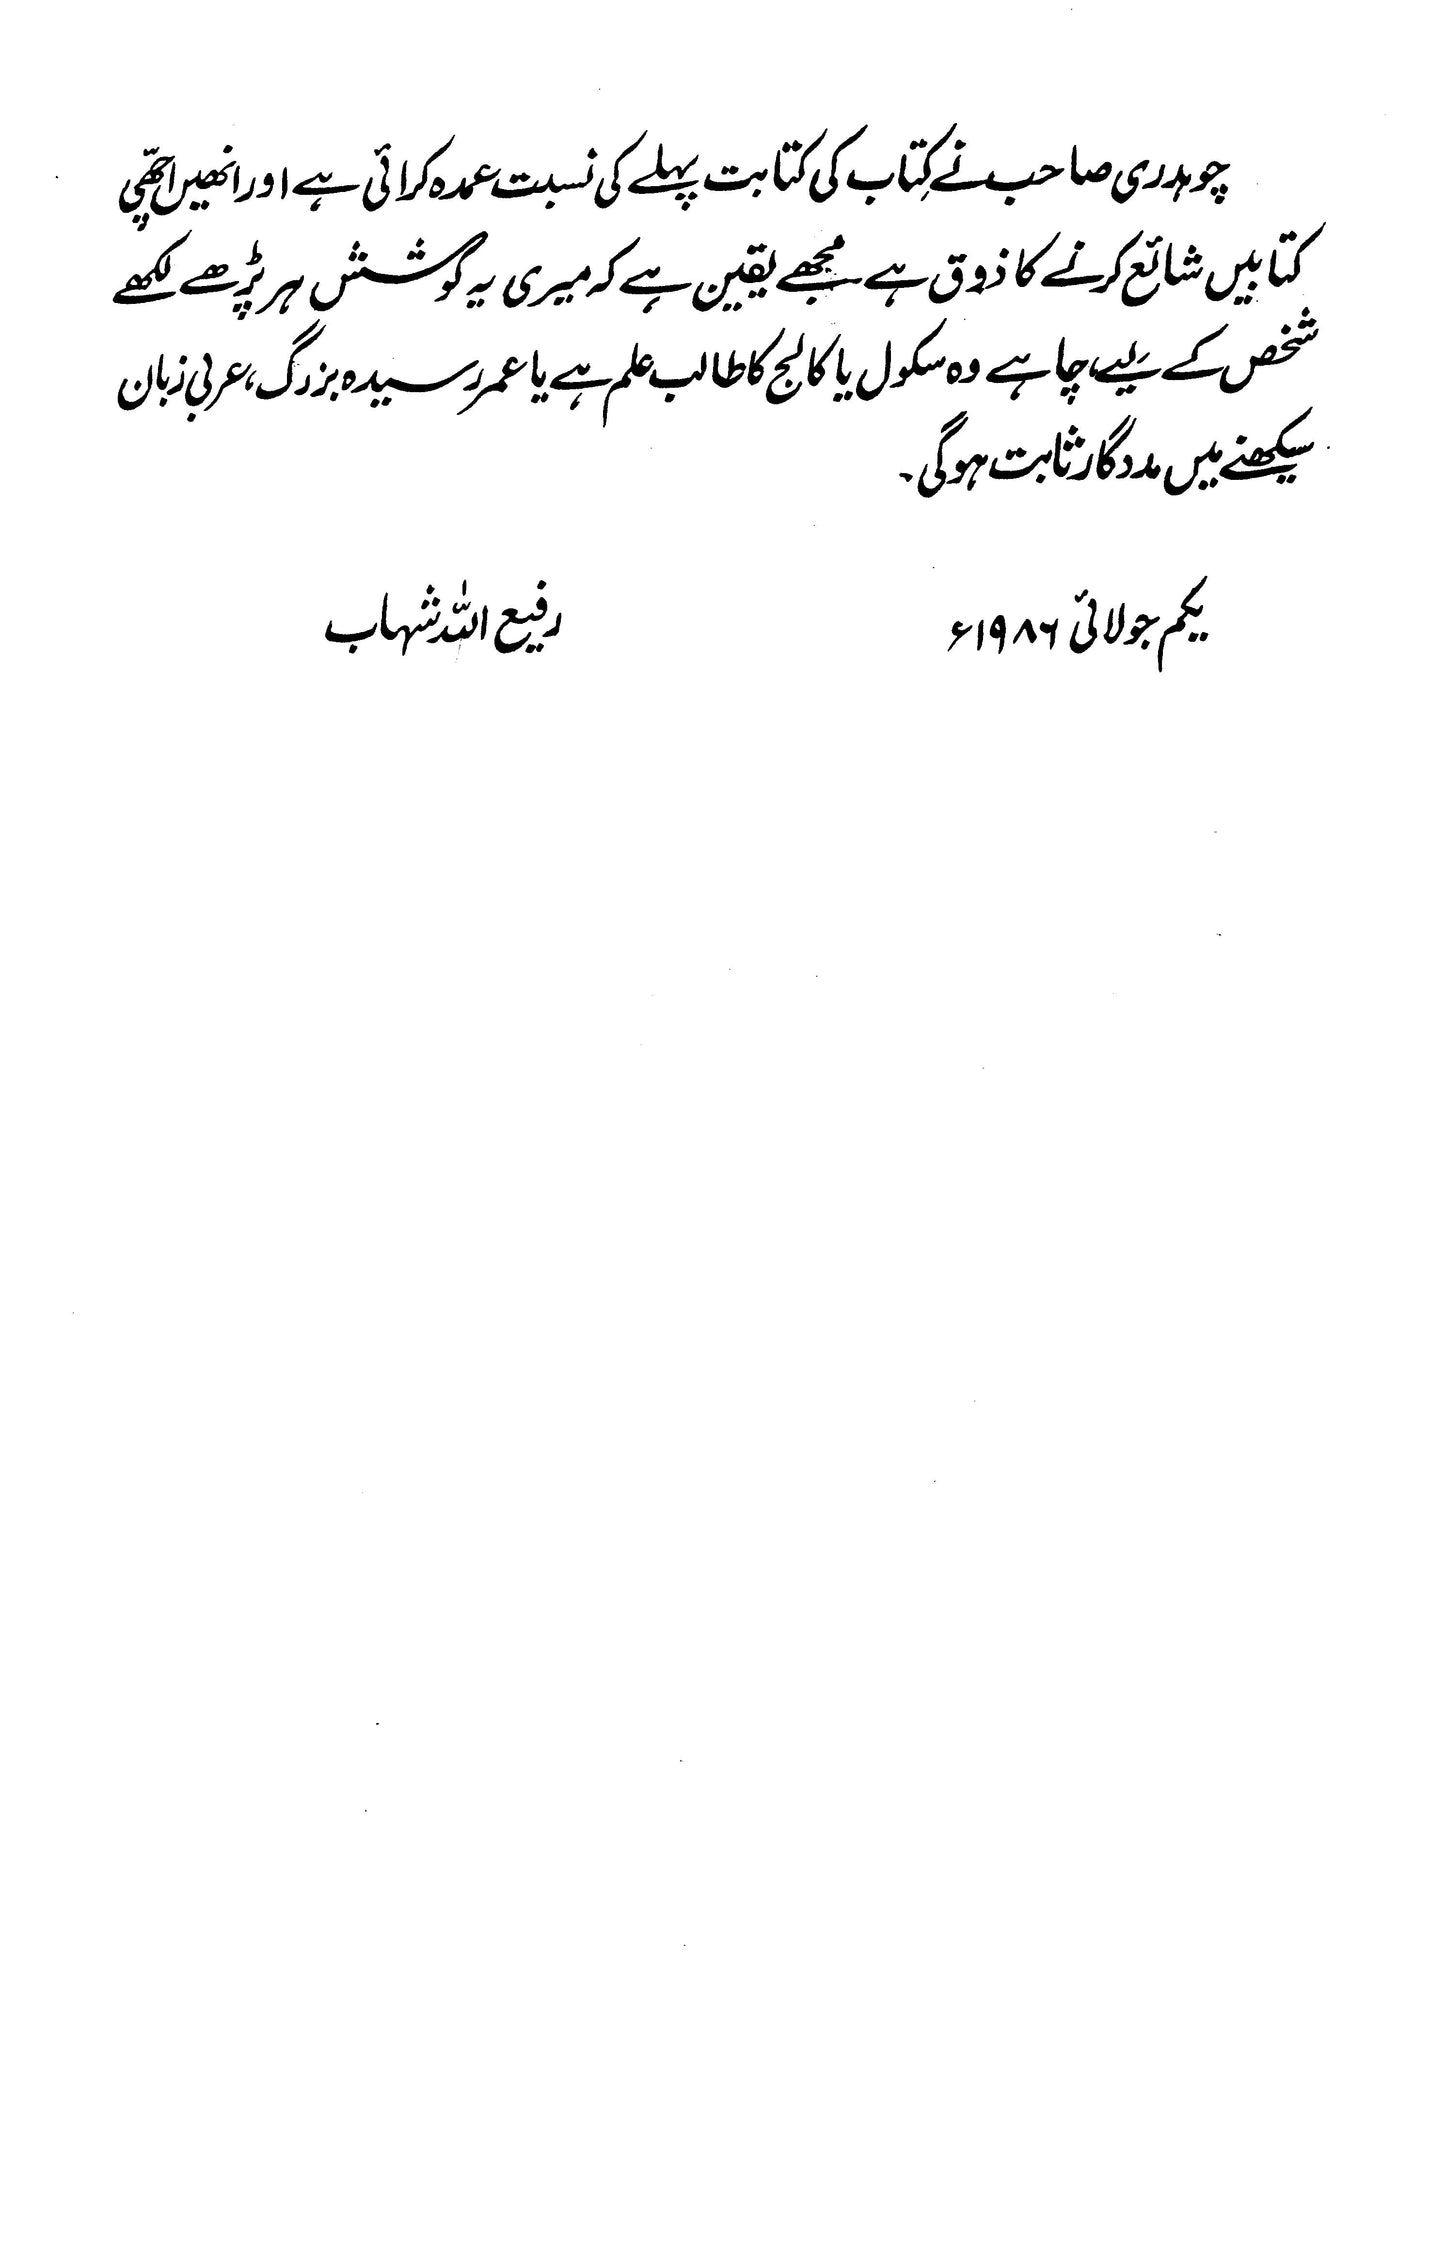 چوہدری صاحب نے کِتاب کی کتابت پہلے کی نسبت عمدہ کرائی ہے اور انھیں اچھّی
کتابیں شائع کرنے کا ذوق ہے۔ مجھے یقین ہے کہ میری یہ کوشش ہر پڑھے لکھے
شخص کے لیے، چاہے وہ سکول یا کالج کا طالب علم ہے یا عمر رسیدہ بزرگ، عربی زبان
سیکھنے میں مددگار ثابت ہوگی۔
یکم جولائی ۱۹۸۶ء
رفیع اللہ شہاب